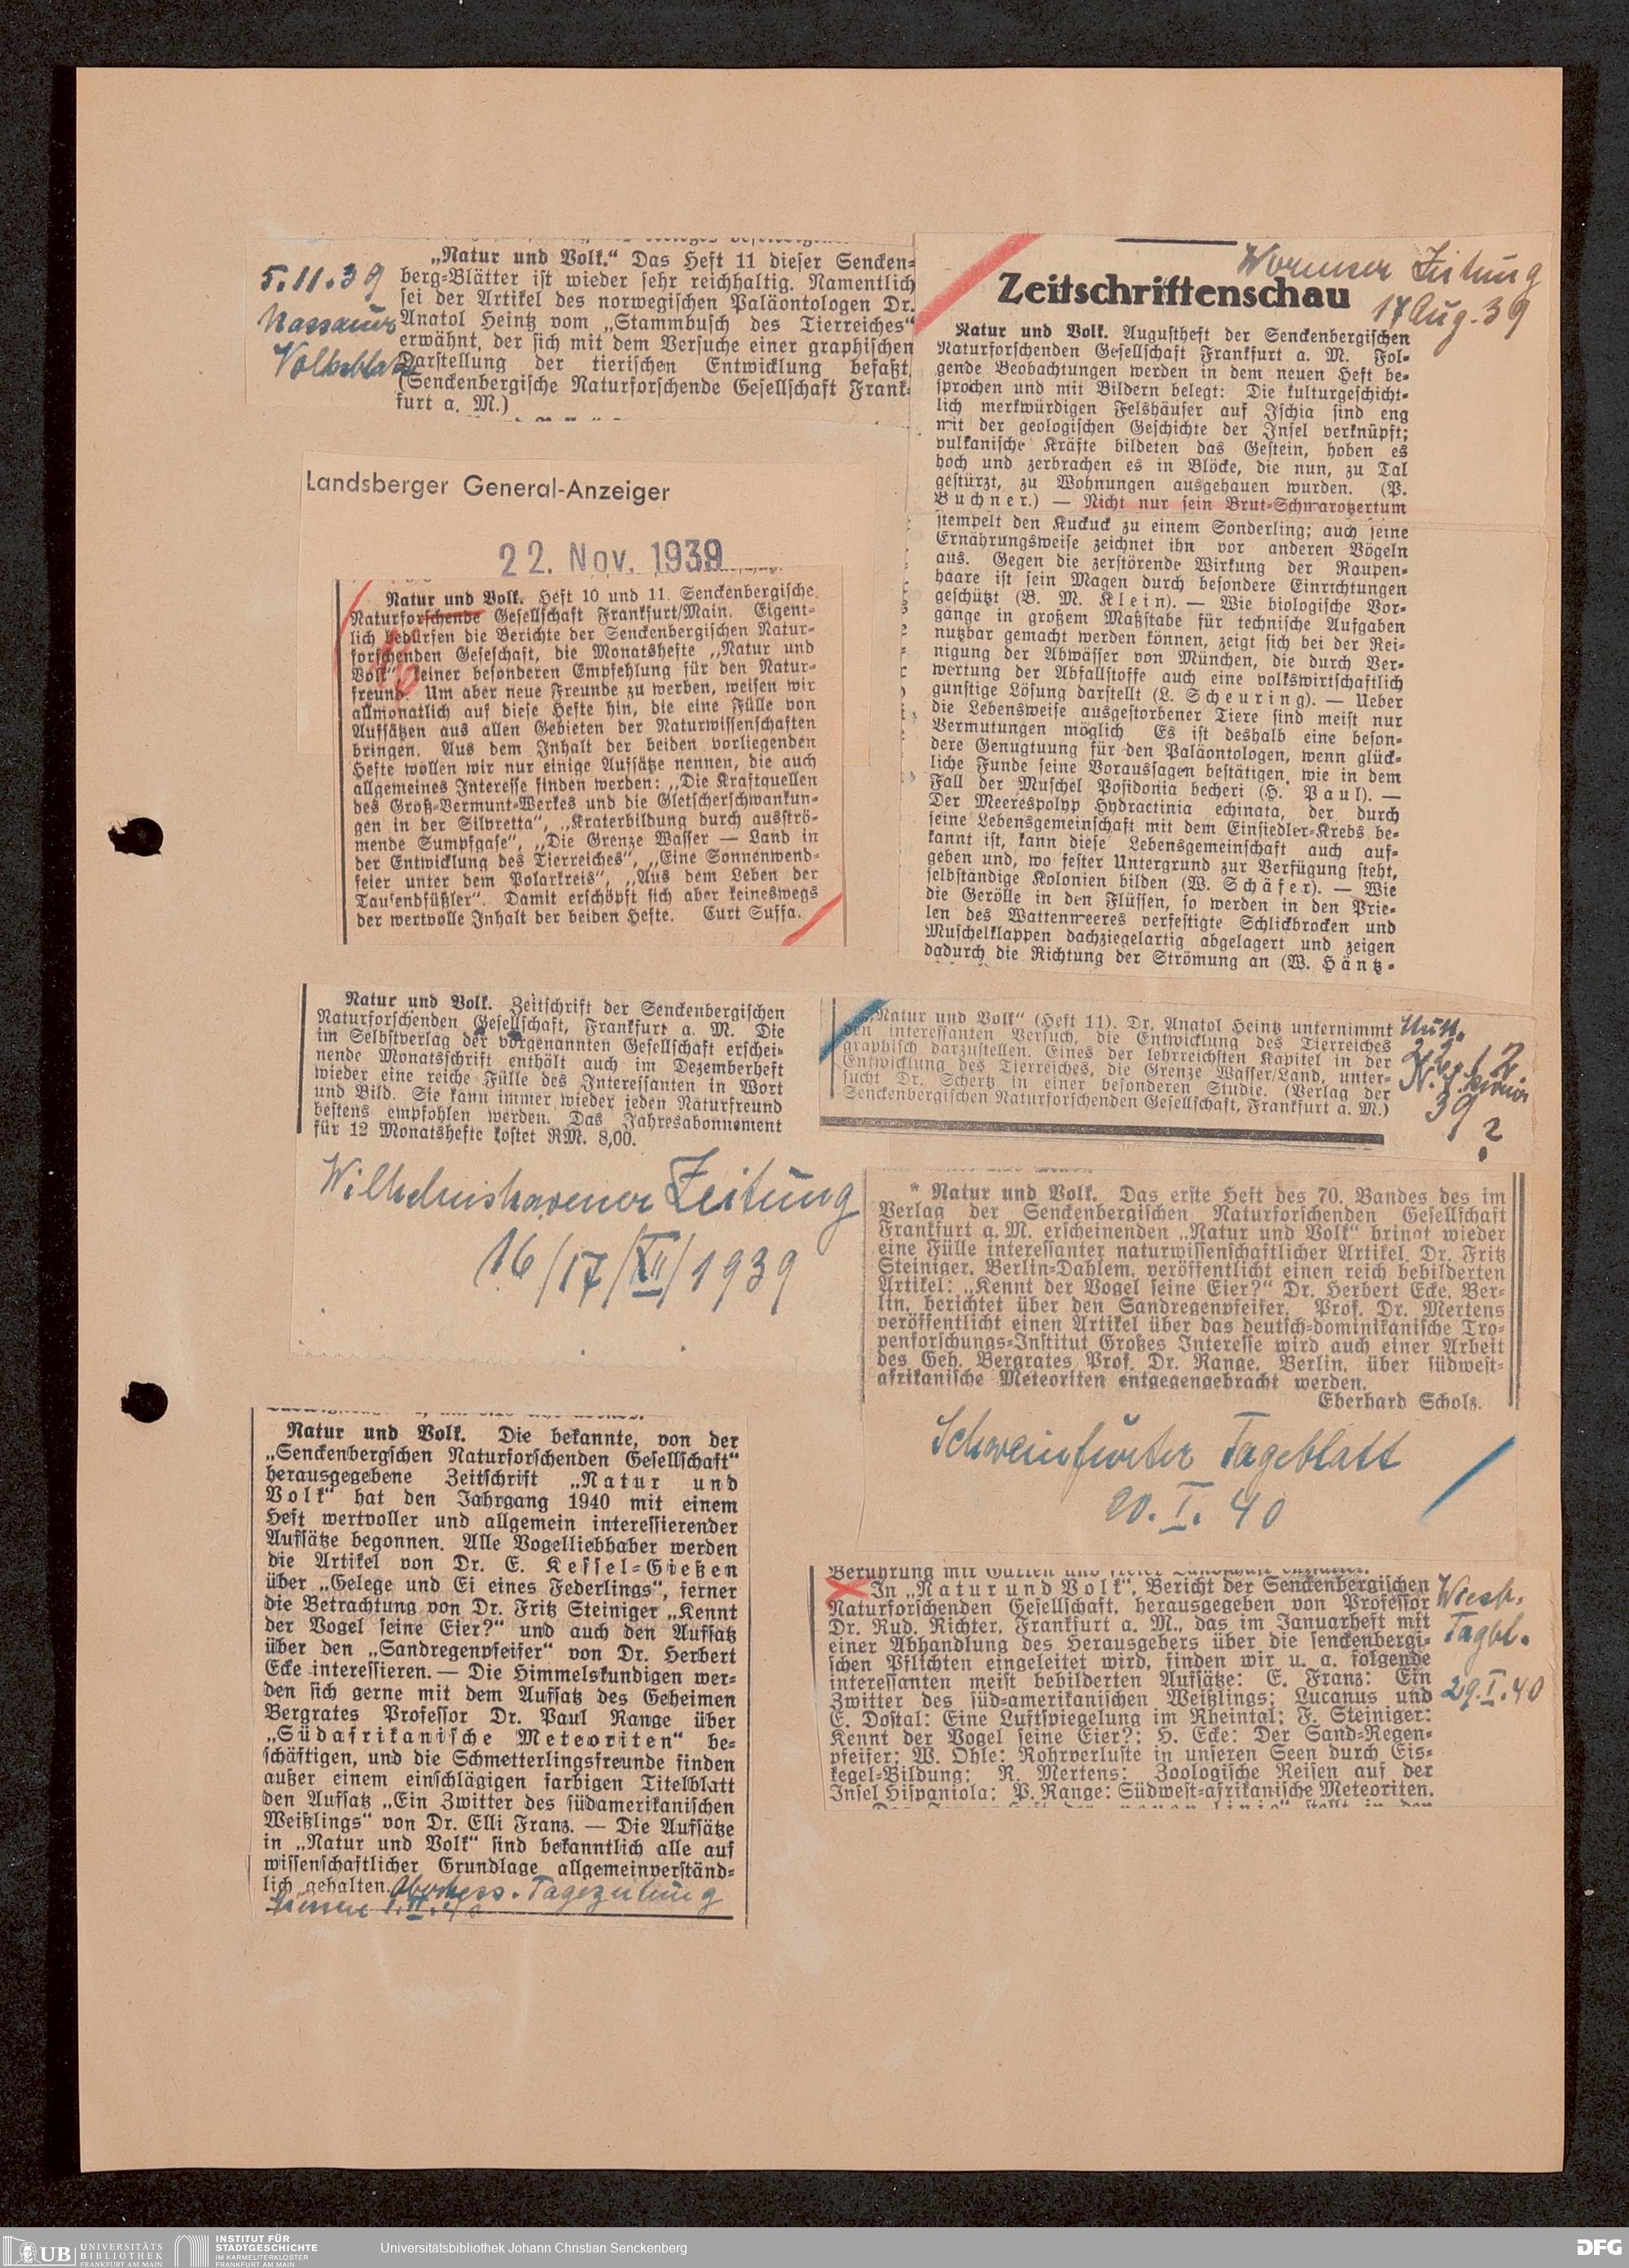 „Natur und Volk.“ Das Heft 11 dieser Sencken-
berg-Blätter ist wieder sehr reichhaltig. Namentlich
sei der Artikel des norwegischen Paläontologen Dr.
Anatol Heintz vom „Stammbusch des Tierreiches“
erwähnt, der sich mit dem Versuche einer graphischen
Darstellung der tierischen Entwicklung befaßt.
(Senckenbergische Naturforschende Gesellschaft Frank-
furt a. M.)
5.11.39
Nassauer
Volksblatt
Landsberger General-Anzeiger
22. Nov. 1939
Natur und Volk. Heft 10 und 11. Senckenbergische
Naturforschende Gesellschaft Frankfurt/Main. Eigent-
lich bedürfen die Berichte der Senckenbergischen Natur-
forschenden Geseschaft, die Monatshefte „Natur und
Volk“ keiner besonderen Empfehlung für den Natur-
freund. Um aber neue Freunde zu werben, weisen wir
allmonatlich auf diese Hefte hin, die eine Fülle von
Aufsätzen aus allen Gebieten der Naturwissenschaften
bringen. Aus dem Inhalt der beiden vorliegenden
Hefte wollen wir nur einige Aufsätze nennen, die auch
allgemeines Interesse finden werden: „Die Kraftquellen
des Groß-Vermunt-Werkes und die Gletscherschwankun-
gen in der Silvretta“, „Kraterbildung durch ausströ-
mende Sumpfgase“, „Die Grenze Wasser — Land in
der Entwicklung des Tierreiches“, „Eine Sonnenwend-
feier unter dem Polarkreis“, „Aus dem Leben der
Tausendfüßler“. Damit erschöpft sich aber keineswegs
der wertvolle Inhalt der beiden Hefte. Curt Sussa.
Wormser Zeitung
17 Aug. 39
Zeitschriftenschau
Natur und Volk. Augustheft der Senckenbergischen
Naturforschenden Gesellschaft Frankfurt a. M. Fol-
gende Beobachtungen werden in dem neuen Heft be-
sprochen und mit Bildern belegt: Die kulturgeschicht-
lich merkwürdigen Felshäuser auf Ischia sind eng
mit der geologischen Geschichte der Insel verknüpft;
vulkanische Kräfte bildeten das Gestein, hoben es
hoch und zerbrachen es in Blöcke, die nun, zu Tal
gestürzt, zu Wohnungen ausgehauen wurden. (P.
Buchner.) — Nicht nur sein Brut-Schmarotzertum
stempelt den Kuckuck zu einem Sonderling; auch seine
Ernährungsweise zeichnet ihn vor anderen Vögeln
aus. Gegen die zerstörende Wirkung der Raupen-
haare ist sein Magen durch besondere Einrichtungen
geschützt (B. M. Klein). — Wie biologische Vor-
gänge in großem Maßstabe für technische Aufgaben
nutzbar gemacht werden können, zeigt sich bei der Rei-
nigung der Abwässer von München, die durch Ver-
wertung der Abfallstoffe auch eine volkswirtschaftlich
günstige Lösung darstellt (L. Scheuring). — Ueber
die Lebensweise ausgestorbener Tiere sind meist nur
Vermutungen möglich Es ist deshalb eine beson-
dere Genugtuung für den Paläontologen, wenn glück-
liche Funde seine Voraussagen bestätigen, wie in dem
Fall der Muschel Posidonia becheri (H. Paul). —
Der Meerespolyp Hydractinia echinata, der durch
seine Lebensgemeinschaft mit dem Einsiedler-Krebs be-
kannt ist, kann diese Lebensgemeinschaft auch auf-
geben und, wo fester Untergrund zur Verfügung steht,
selbständige Kolonien bilden (W. Schäfer). — Wie
die Gerölle in den Flüssen, so werden in den Prie-
len des Wattenmeeres verfestigte Schlickbrocken und
Muschelklappen dachziegelartig abgelagert und zeigen
dadurch die Richtung der Strömung an (W. Häntz-
Natur und Volk. Zeitschrift der Senckenbergischen
Naturforschenden Gesellschaft, Frankfurt a. M. Die
im Selbstverlag der vorgenannten Gesellschaft erschei-
nende Monatsschrift enthält auch im Dezemberheft
wieder eine reiche Fülle des Interessanten in Wort
und Bild. Sie kann immer wieder jeden Naturfreund
bestens empfohlen werden. Das Jahresabonnement
für 12 Monatshefte kostet RM. 8,00.
Wilhelmshavener Zeitung
16/17/XII/1939
„Natur und Volk“ (Heft 11). Dr. Anatol Heintz unternimmt
den interessanten Versuch, die Entwicklung des Tierreiches
graphisch darzustellen. Eines der lehrreichsten Kapitel in der
Entwicklung des Tierreiches, die Grenze Wasser/Land, unter-
sucht Dr. Schertz in einer besonderen Studie. (Verlag der
Senckenbergischen Naturforschenden Gesellschaft, Frankfurt a. M.)
39
?
* Natur und Volk. Das erste Heft des 70. Bandes des im
Verlag der Senckenbergischen Naturforschenden Gesellschaft
Frankfurt a. M. erscheinenden „Natur und Volk“ bringt wieder
eine Fülle interessanter naturwissenschaftlicher Artikel. Dr. Fritz
Steiniger, Berlin-Dahlem, veröffentlicht einen reich bebilderten
Artikel: „Kennt der Vogel seine Eier?“ Dr. Herbert Ecke, Ber-
lin, berichtet über den Sandregenpfeifer. Prof. Dr. Mertens
veröffentlicht einen Artikel über das deutsch-dominikanische Tro-
penforschungs-Institut Großes Interesse wird auch einer Arbeit
des Geh. Bergrates Prof. Dr. Range, Berlin, über südwest-
afrikanische Meteoriten entgegengebracht werden.
Eberhard Scholz.
Schweinfurter Tageblatt
20. I. 40
Natur und Volk. Die bekannte, von der
„Senckenbergschen Naturforschenden Gesellschaft“
herausgegebene Zeitschrift „Natur und
Volk“ hat den Jahrgang 1940 mit einem
Heft wertvoller und allgemein interessierender
Aufsätze begonnen. Alle Vogelliebhaber werden
die Artikel von Dr. E. Kessel-Gießen
über „Gelege und Ei eines Federlings“, ferner
die Betrachtung von Dr. Fritz Steiniger „Kennt
der Vogel seine Eier?“ und auch den Aufsatz
über den „Sandregenpfeifer“ von Dr. Herbert
Ecke interessieren. — Die Himmelskundigen wer-
den sich gerne mit dem Aufsatz des Geheimen
Bergrates Professor Dr. Paul Range über
„Südafrikanische Meteoriten“ be-
schäftigen, und die Schmetterlingsfreunde finden
außer einem einschlägigen farbigen Titelblatt
den Aufsatz „Ein Zwitter des südamerikanischen
Weißlings“ von Dr. Elli Franz. — Die Aufsätze
in „Natur und Volk“ sind bekanntlich alle auf
wissenschaftlicher Grundlage allgemeinverständ-
lich gehalten. Oberhess. Tageszeitung
In „Natur und Volk“, Bericht der Senckenbergischen
Naturforschenden Gesellschaft, herausgegeben von Professor
Dr. Rud. Richter, Frankfurt a. M., das im Januarheft mit
einer Abhandlung des Herausgebers über die senckenbergi-
schen Pflichten eingeleitet wird, finden wir u. a. folgende
interessanten meist bebilderten Aufsätze: E. Franz: Ein
Zwitter des süd-amerikanischen Weißlings; Lucanus und
E. Dostal: Eine Luftspiegelung im Rheintal; F. Steiniger:
Kennt der Vogel seine Eier?; H. Ecke: Der Sand-Regen-
pfeifer; W. Ohle: Rohrverluste in unseren Seen durch Eis-
kegel-Bildung; R. Mertens: Zoologische Reisen auf der
Insel Hispaniola; P. Range: Südwest-afrikanische Meteoriten.
Wiesb.
Tagbl.
29.I.40
UB UNIVERSITÄTS
BIBLIOTHEK
FRANKFURT AM MAIN
INSTITUT FÜR
STADTGESCHICHTE
IM KARMELITERKLOSTER
FRANKFURT AM MAIN
Universitätsbibliothek Johann Christian Senckenberg
DFG